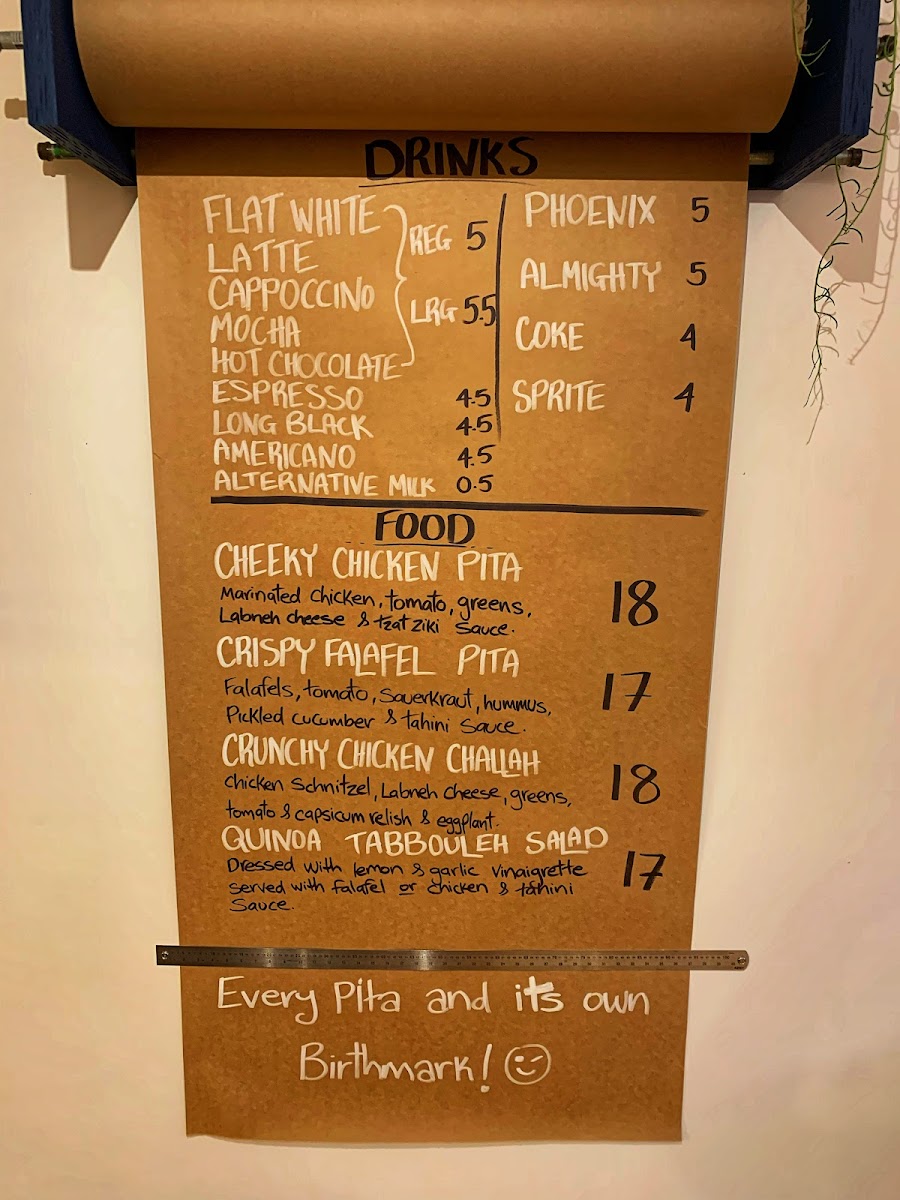 DRINKS
FLAT WHITE
LATTE
CAPPOCCINO
MOCHA
HOT CHOCOLATE
REG 5
LRG 5.5
ESPRESSO 4.5
LONG BLACK 4.5
AMERICANO 4.5
ALTERNATIVE MILK 0.5
PHOENIX 5
ALMIGHTY 5
COKE 4
SPRITE 4
FOOD
CHEEKY CHICKEN PITA 18
Marinated chicken, tomato, greens,
Labneh cheese & tzatziki sauce.
CRISPY FALAFEL PITA 17
Falafels, tomato, Sauerkraut, hummus,
Pickled cucumber & tahini sauce.
CRUNCHY CHICKEN CHALLAH 18
Chicken Schnitzel, Labneh cheese, greens,
tomato & capsicum relish & eggplant.
QUINOA TABBOULEH SALAD 17
Dressed with lemon & garlic vinaigrette
served with falafel or chicken & tahini
Sauce.
Every Pita and its own
Birthmark! 😉